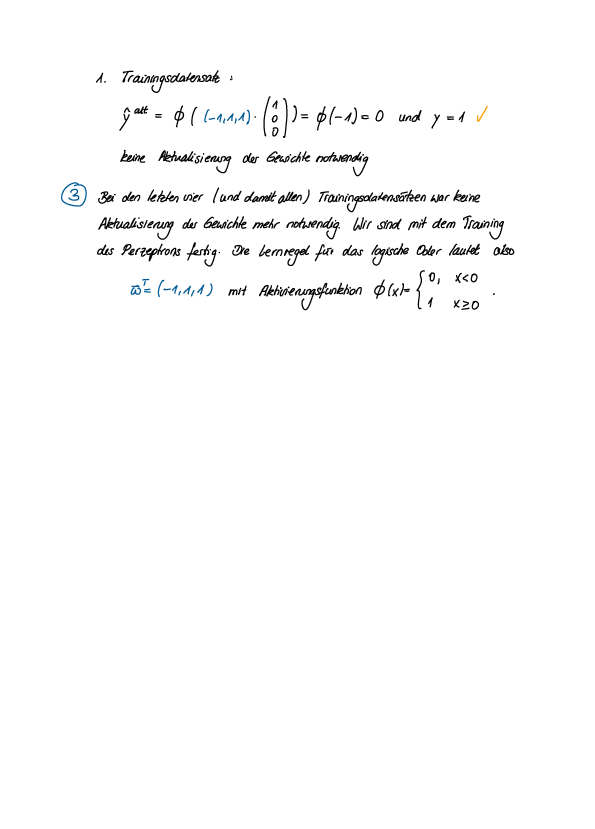 1. Trainingsdatensatz :
ŷ^alt = ϕ ( (-1,1,1) · (1 0 0) ) = ϕ(-1) = 0 und y = 1 ✓
keine Aktualisierung der Gewichte notwendig
③ Bei den letzten vier (und damit allen) Trainingsdatensätzen war keine
Aktualisierung der Gewichte mehr notwendig. Wir sind mit dem Training
des Perzeptrons fertig. Die Lernregel für das logische Oder lautet also
ω̄^T = (-1,1,1) mit Aktivierungsfunktion ϕ(x) = { 0, x<0
1 x≥0 .